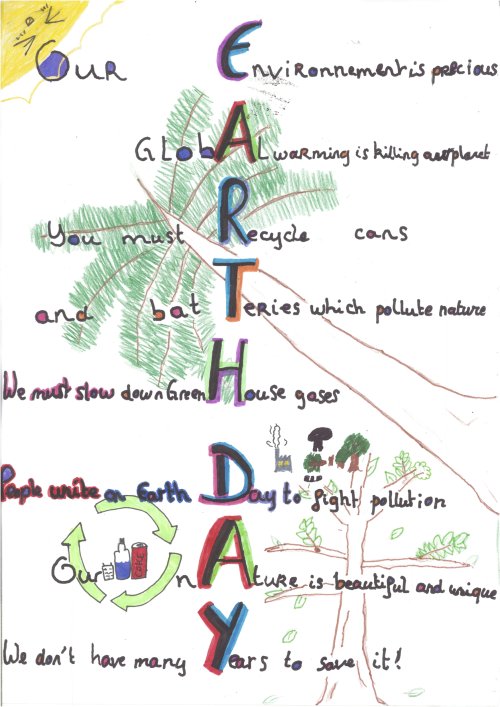 Our Environnement is precious
Global warming is killing our planet
You must Recycle cans
and batteries which pollute nature
We must slow down Green House gases
People unite on Earth Day to fight pollution
COKE
Our nAture is beautiful and unique
We don't have many Years to save it!